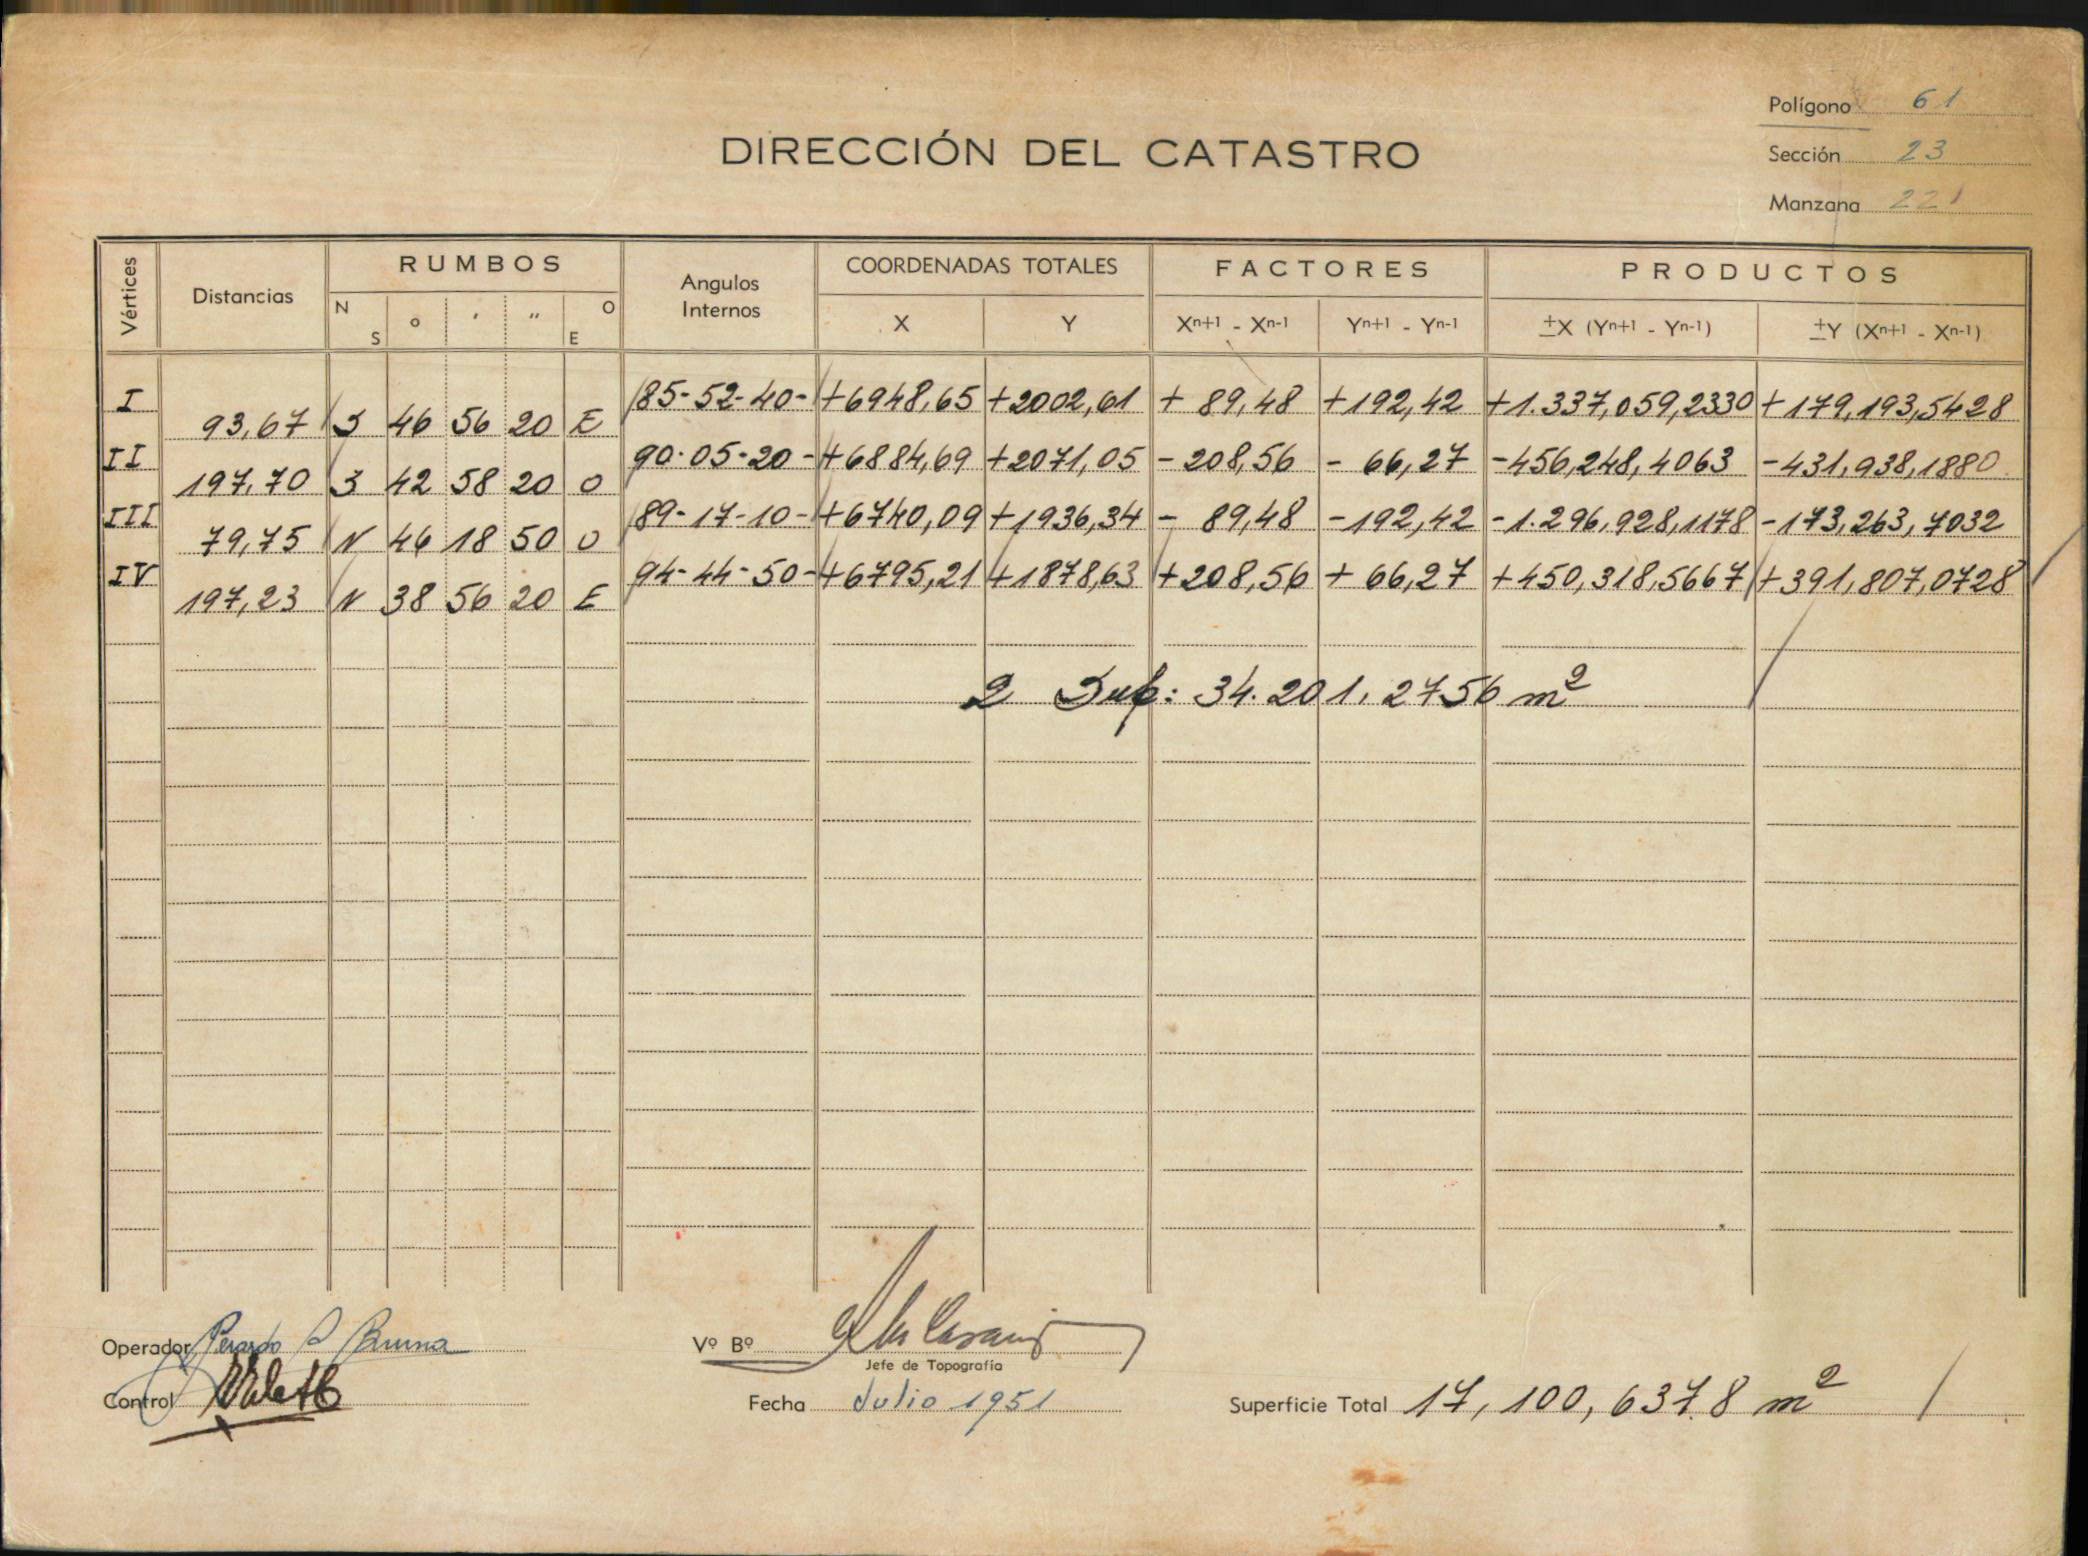 Polígono 61
DIRECCIÓN DEL CATASTRO
Sección 23
Manzana 221
Vértices Distancias RUMBOS Angulos Internos COORDENADAS TOTALES FACTORES PRODUCTOS
N S ° ' " O E X Y Xn+1 - Xn-1 Yn+1 - Yn-1 ±X (Yn+1 - Yn-1) ±Y (Xn+1 - Xn-1)
I 85-52-40- +6948,65 +2002,61 + 89,48 +192,42 +1.337,059,2330 +179,193,5428
93,67 S 46 56 20 E
II 90-05-20- +6884,69 +2071,05 - 208,56 - 66,27 -456,248,4063 -431,938,1880
197,70 S 42 58 20 O
III 89-17-10- +6740,09 +1936,34 - 89,48 -192,42 -1.296.928,1178 -173,263,7032
79,75 N 46 18 50 O
IV 94-44-50- +6795,21 +1878,63 +208,56 + 66,27 +450,318,5667 +391,807,0728
197,23 N 38 56 20 E
2 Sup: 34.201,2756 m²
Operador
Vº Bº
Jefe de Topografía
Control
Fecha Julio 1951
Superficie Total 17,100,6378 m²